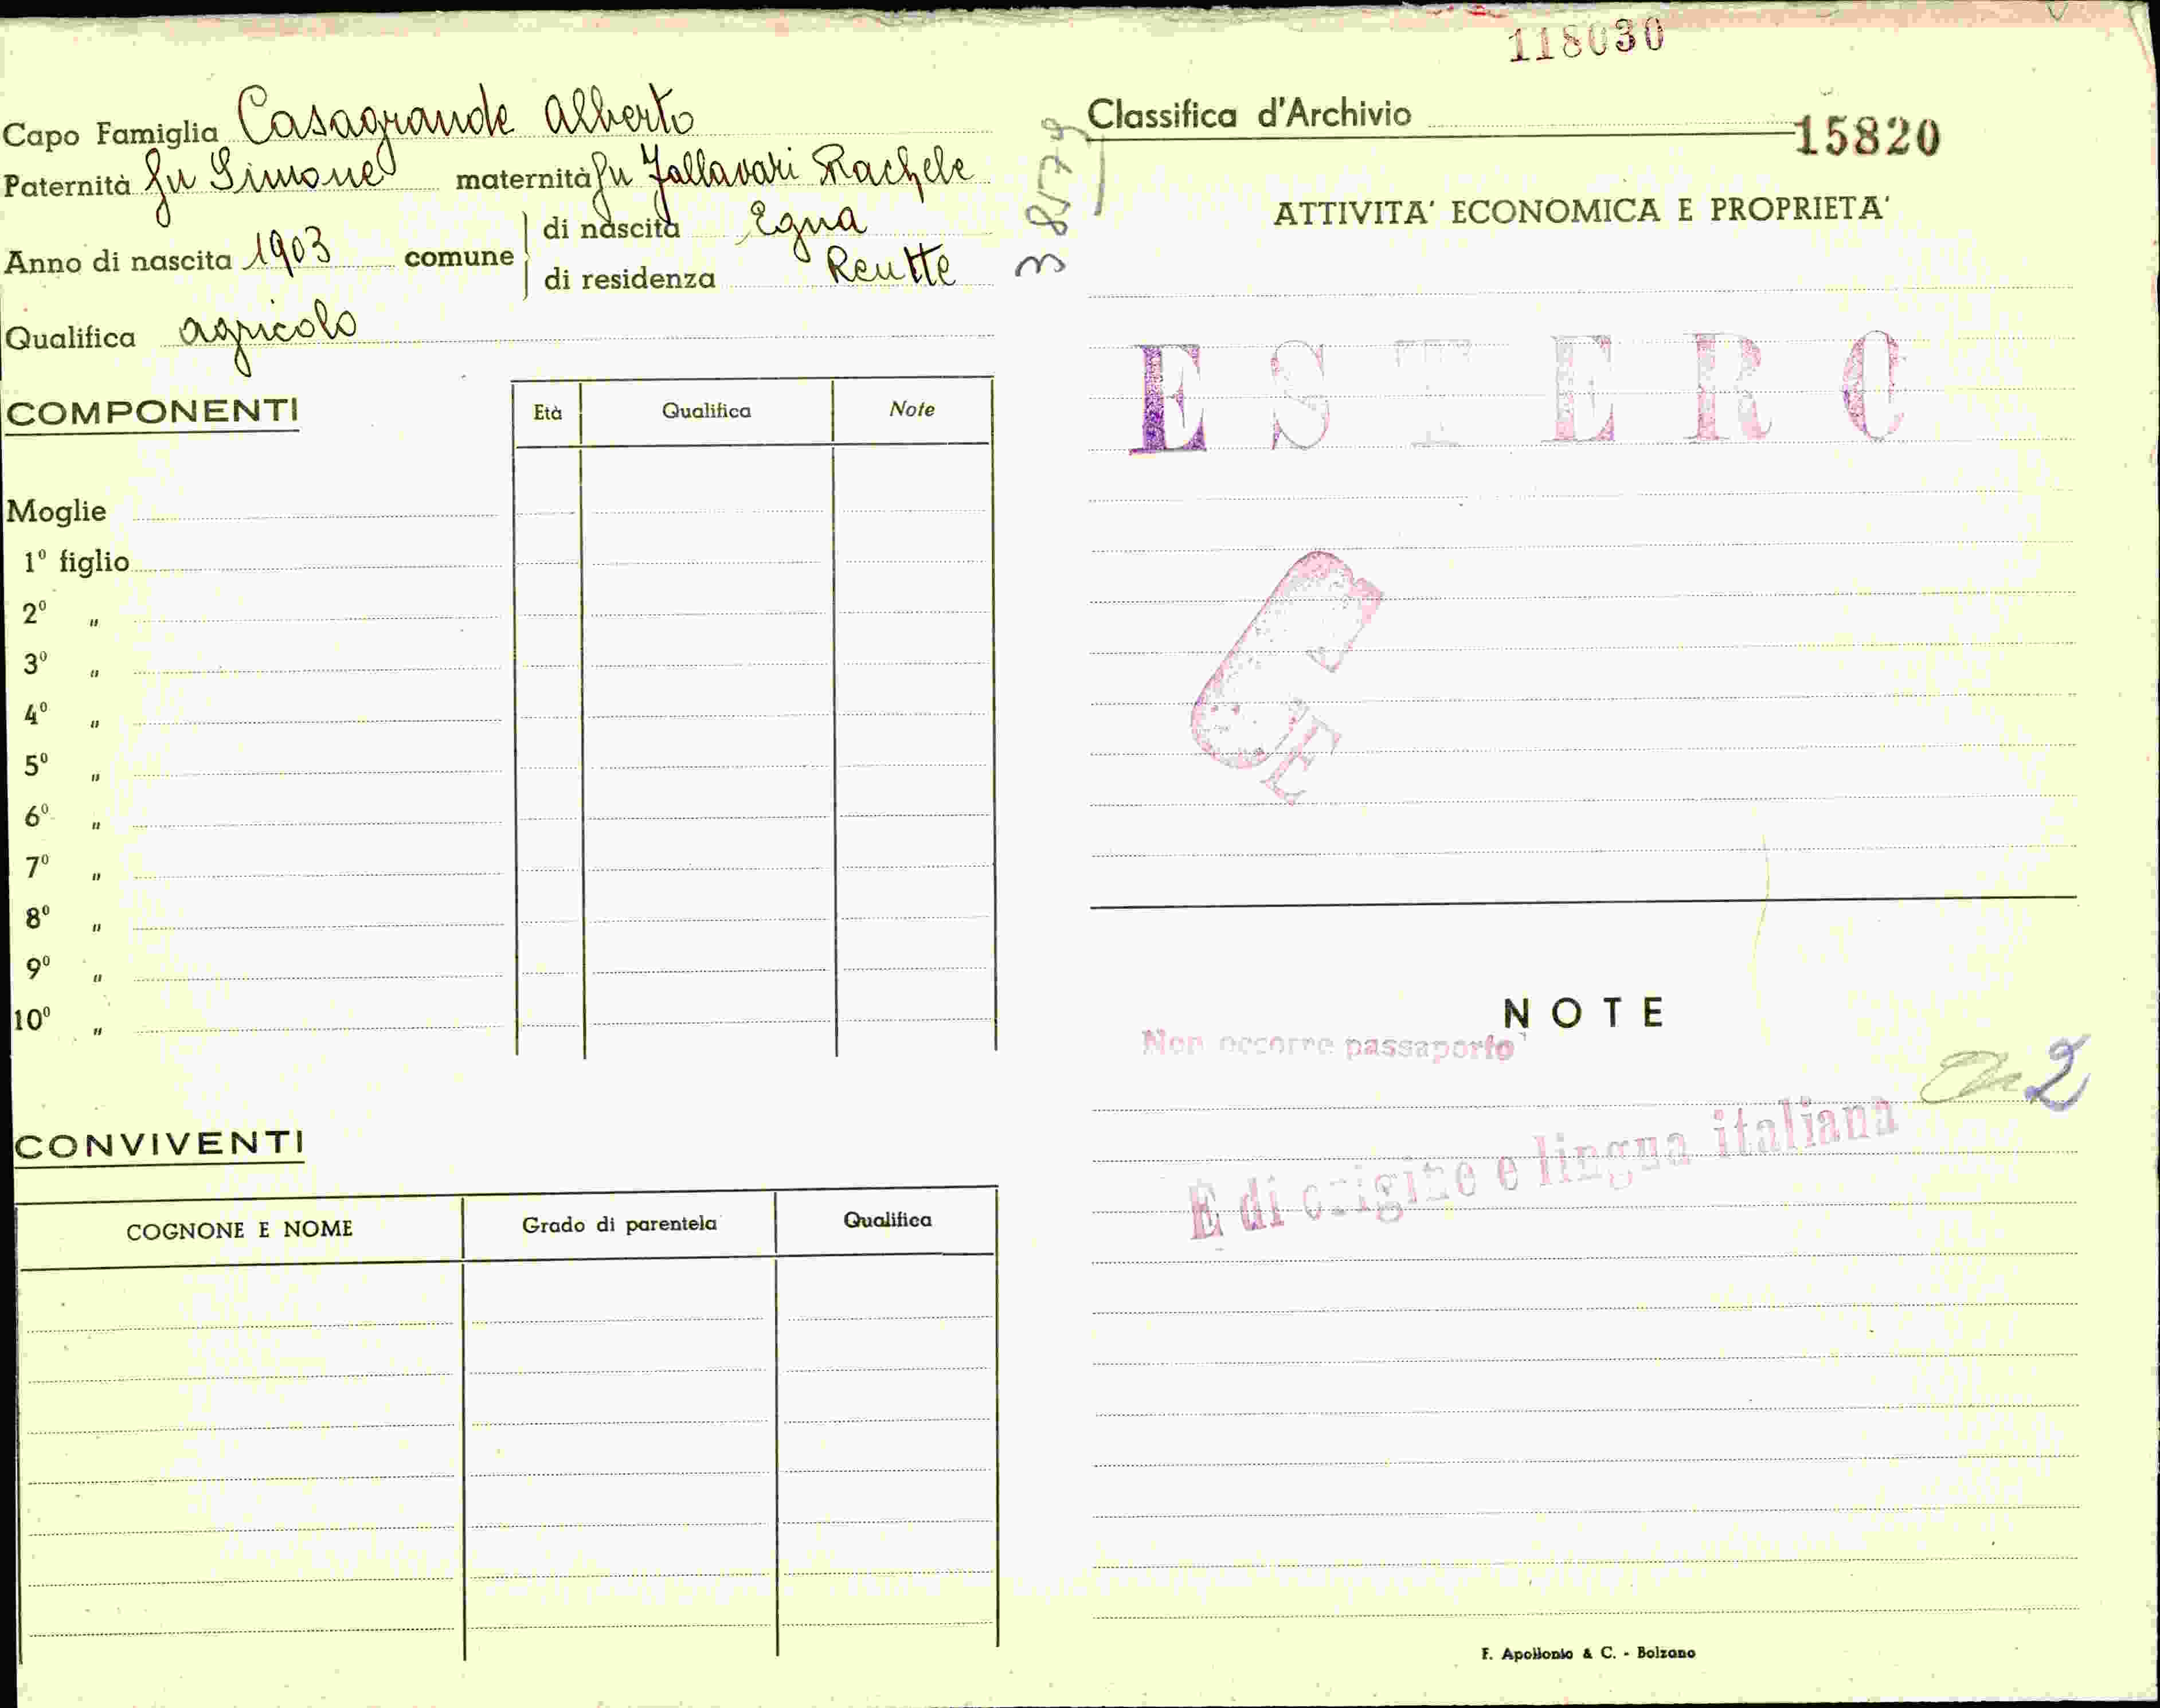 118030
Capo Famiglia Casagrande Alberto
Paternità fu Simone maternità fu Rachele
Anno di nascita 1903 comune di nascita Egna
di residenza Reutte
Qualifica agricolo
COMPONENTI
Età Qualifica Note
Moglie
1º figlio
2º "
3º "
4º "
5º "
6º "
7º "
8º "
9º "
10º "
CONVIVENTI
COGNONE E NOME Grado di parentela Qualifica
38579
Classifica d'Archivio
15820
ATTIVITA' ECONOMICA E PROPRIETA'
ESTERO
NOTE
Non occorre passaporto
2
È di origine e lingua italiana
F. Apollonio & C. - Bolzano